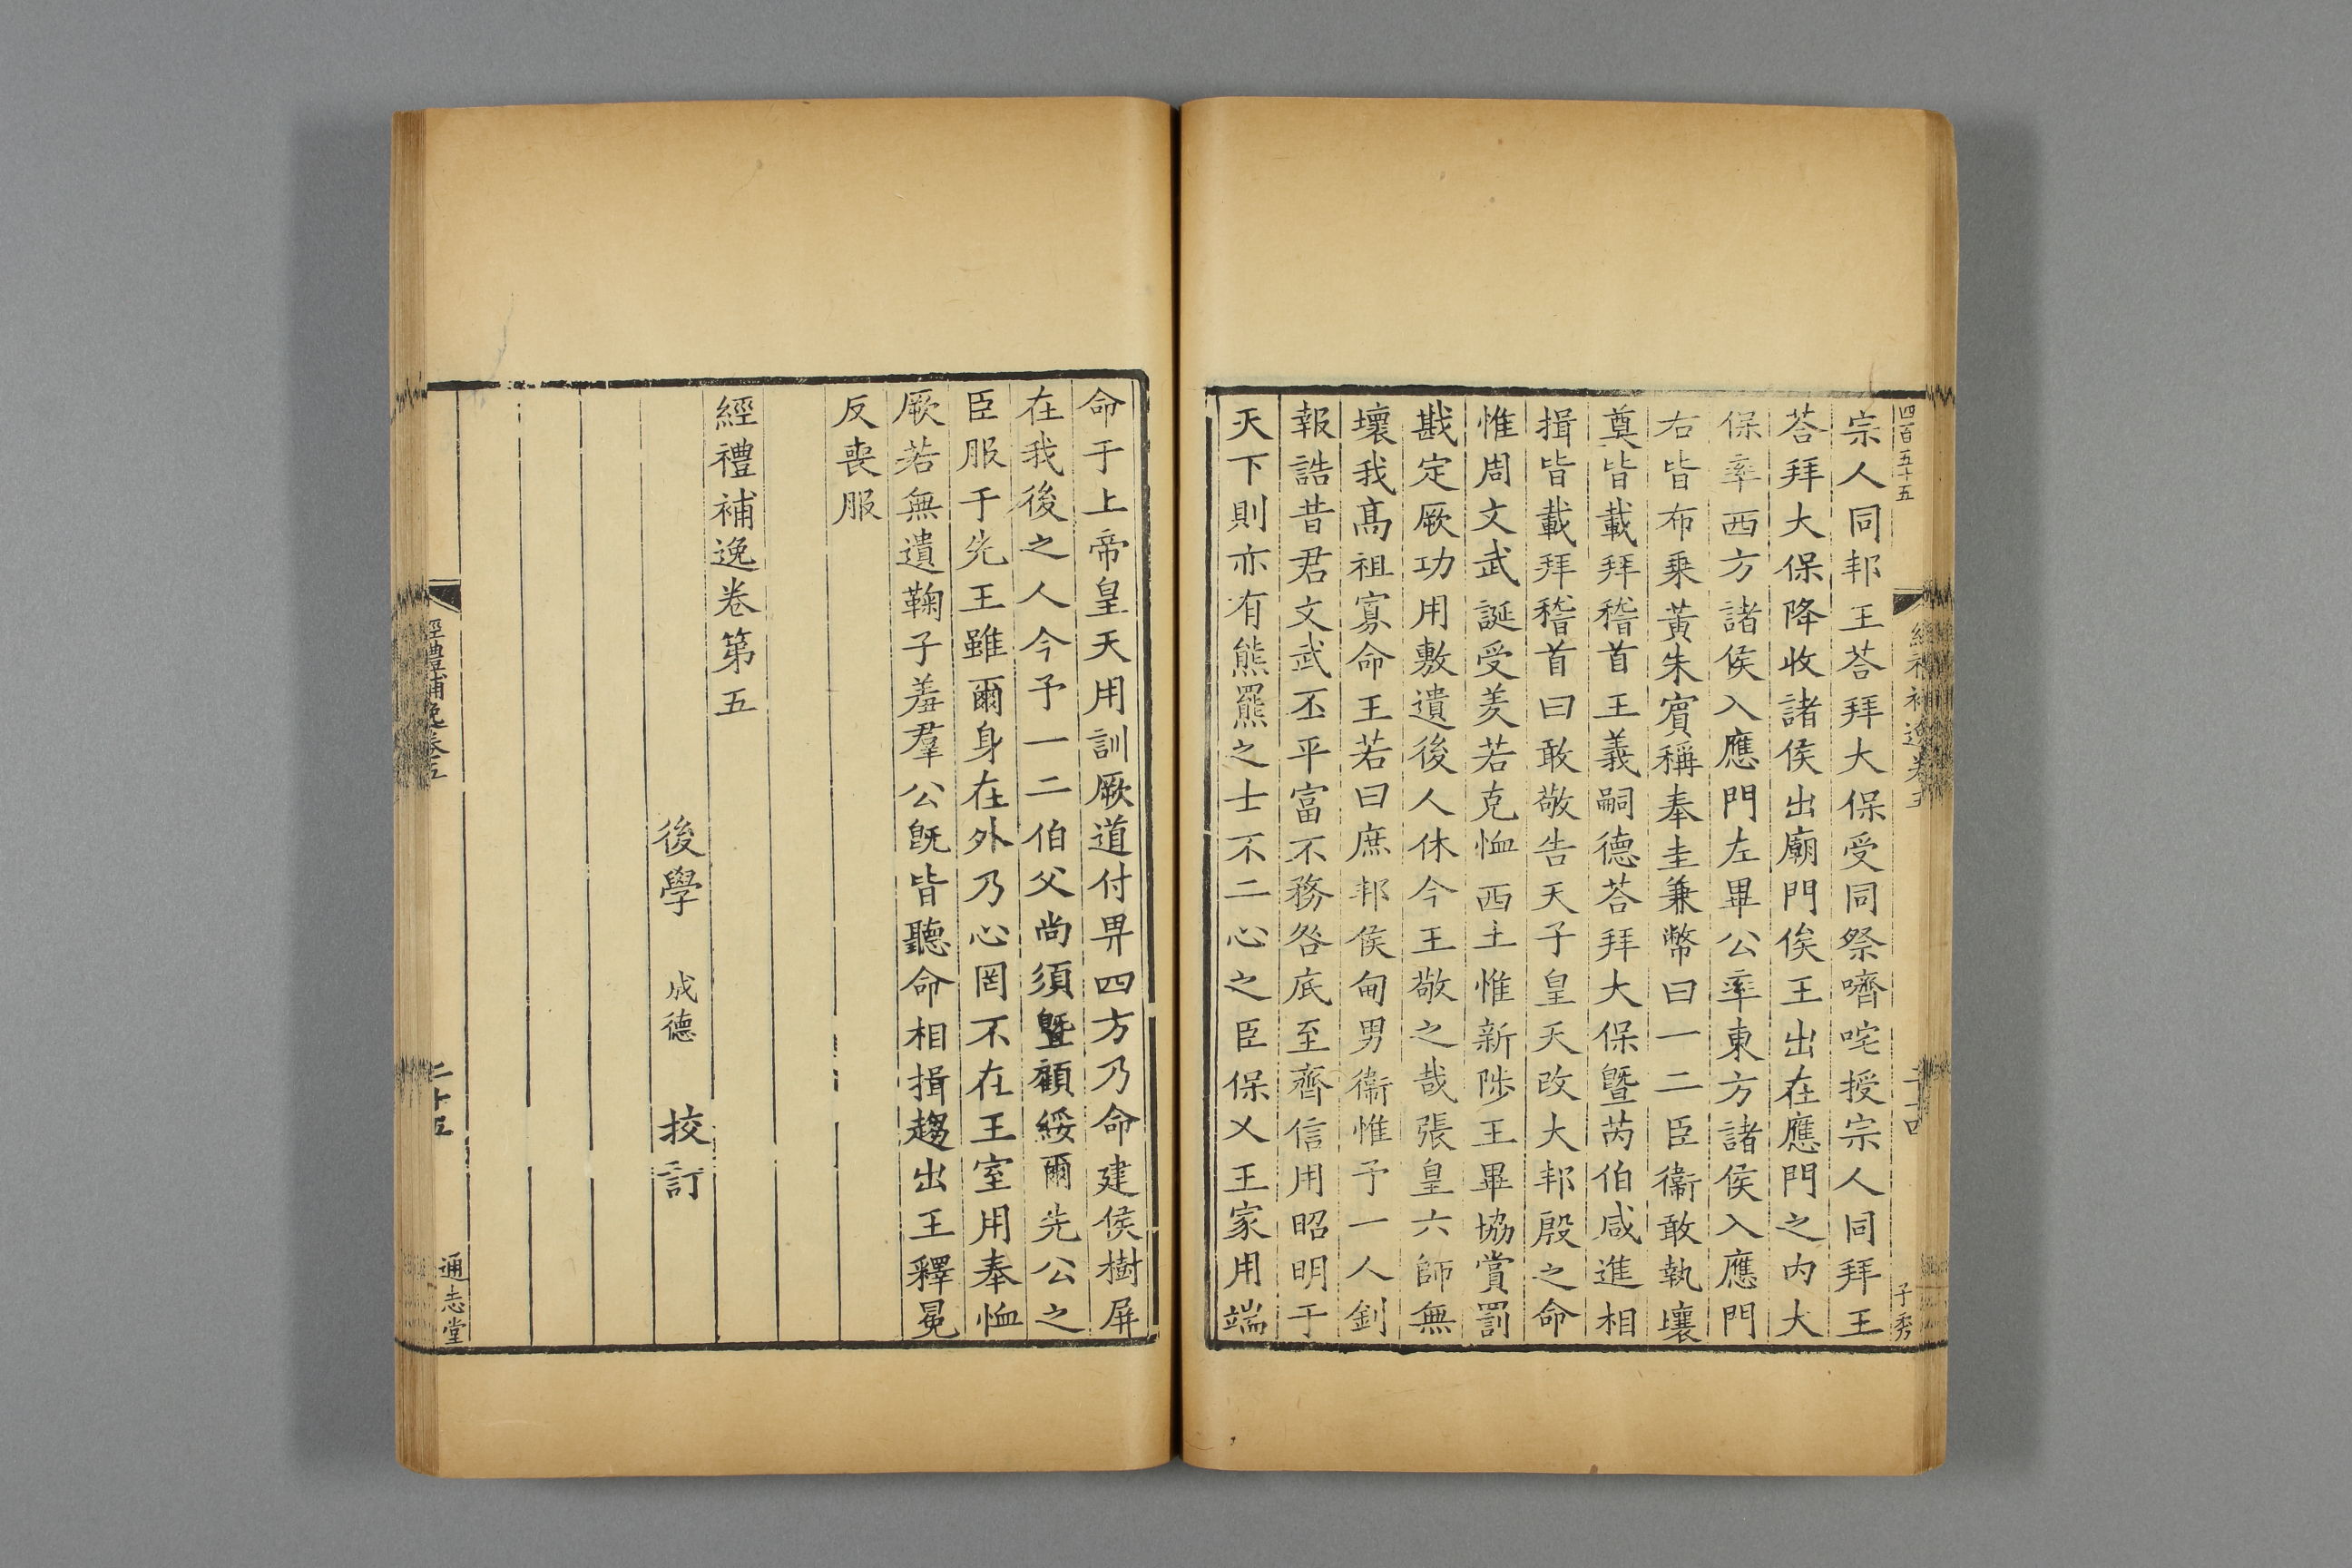 四百五十五
子秀
宗人同邦王荅拜大保受同祭嚌咤授宗人同拜王
荅拜大保降收諸侯出廟門俟王出在應門之内大
保率西方諸侯入應門左畢公率東方諸侯入應門
右皆布乗黃朱賔稱奉圭兼幣曰一二臣衞敢執壤
奠皆載拜稽首王義嗣德荅拜大保曁芮伯咸進相
揖皆載拜稽首曰敢敬告天子皇天改大邦殷之命
惟周文武誕受羑若克恤西土惟新陟王畢協賞罰
戡定厥功用敷遺後人休今王敬之哉張皇六師無
壞我髙祖寡命王若曰庶邦侯甸男衞惟予一人釗
報誥昔君文武丕平富不務咎底至齊信用昭明于
天下則亦有熊羆之士不二心之臣保乂王家用端
命于上帝皇天用訓厥道付畀四方乃命建侯樹屏
在我後之人今予一二伯父尚須曁顧綏爾先公之
臣服于先王雖爾身在外乃心罔不在王室用奉恤
厥若無遺鞠子羞羣公旣皆聽命相揖趨出王釋冕
反喪服
經禮補逸卷第五
後學 成德 挍訂
經禮補逸卷五
二十五
通志堂